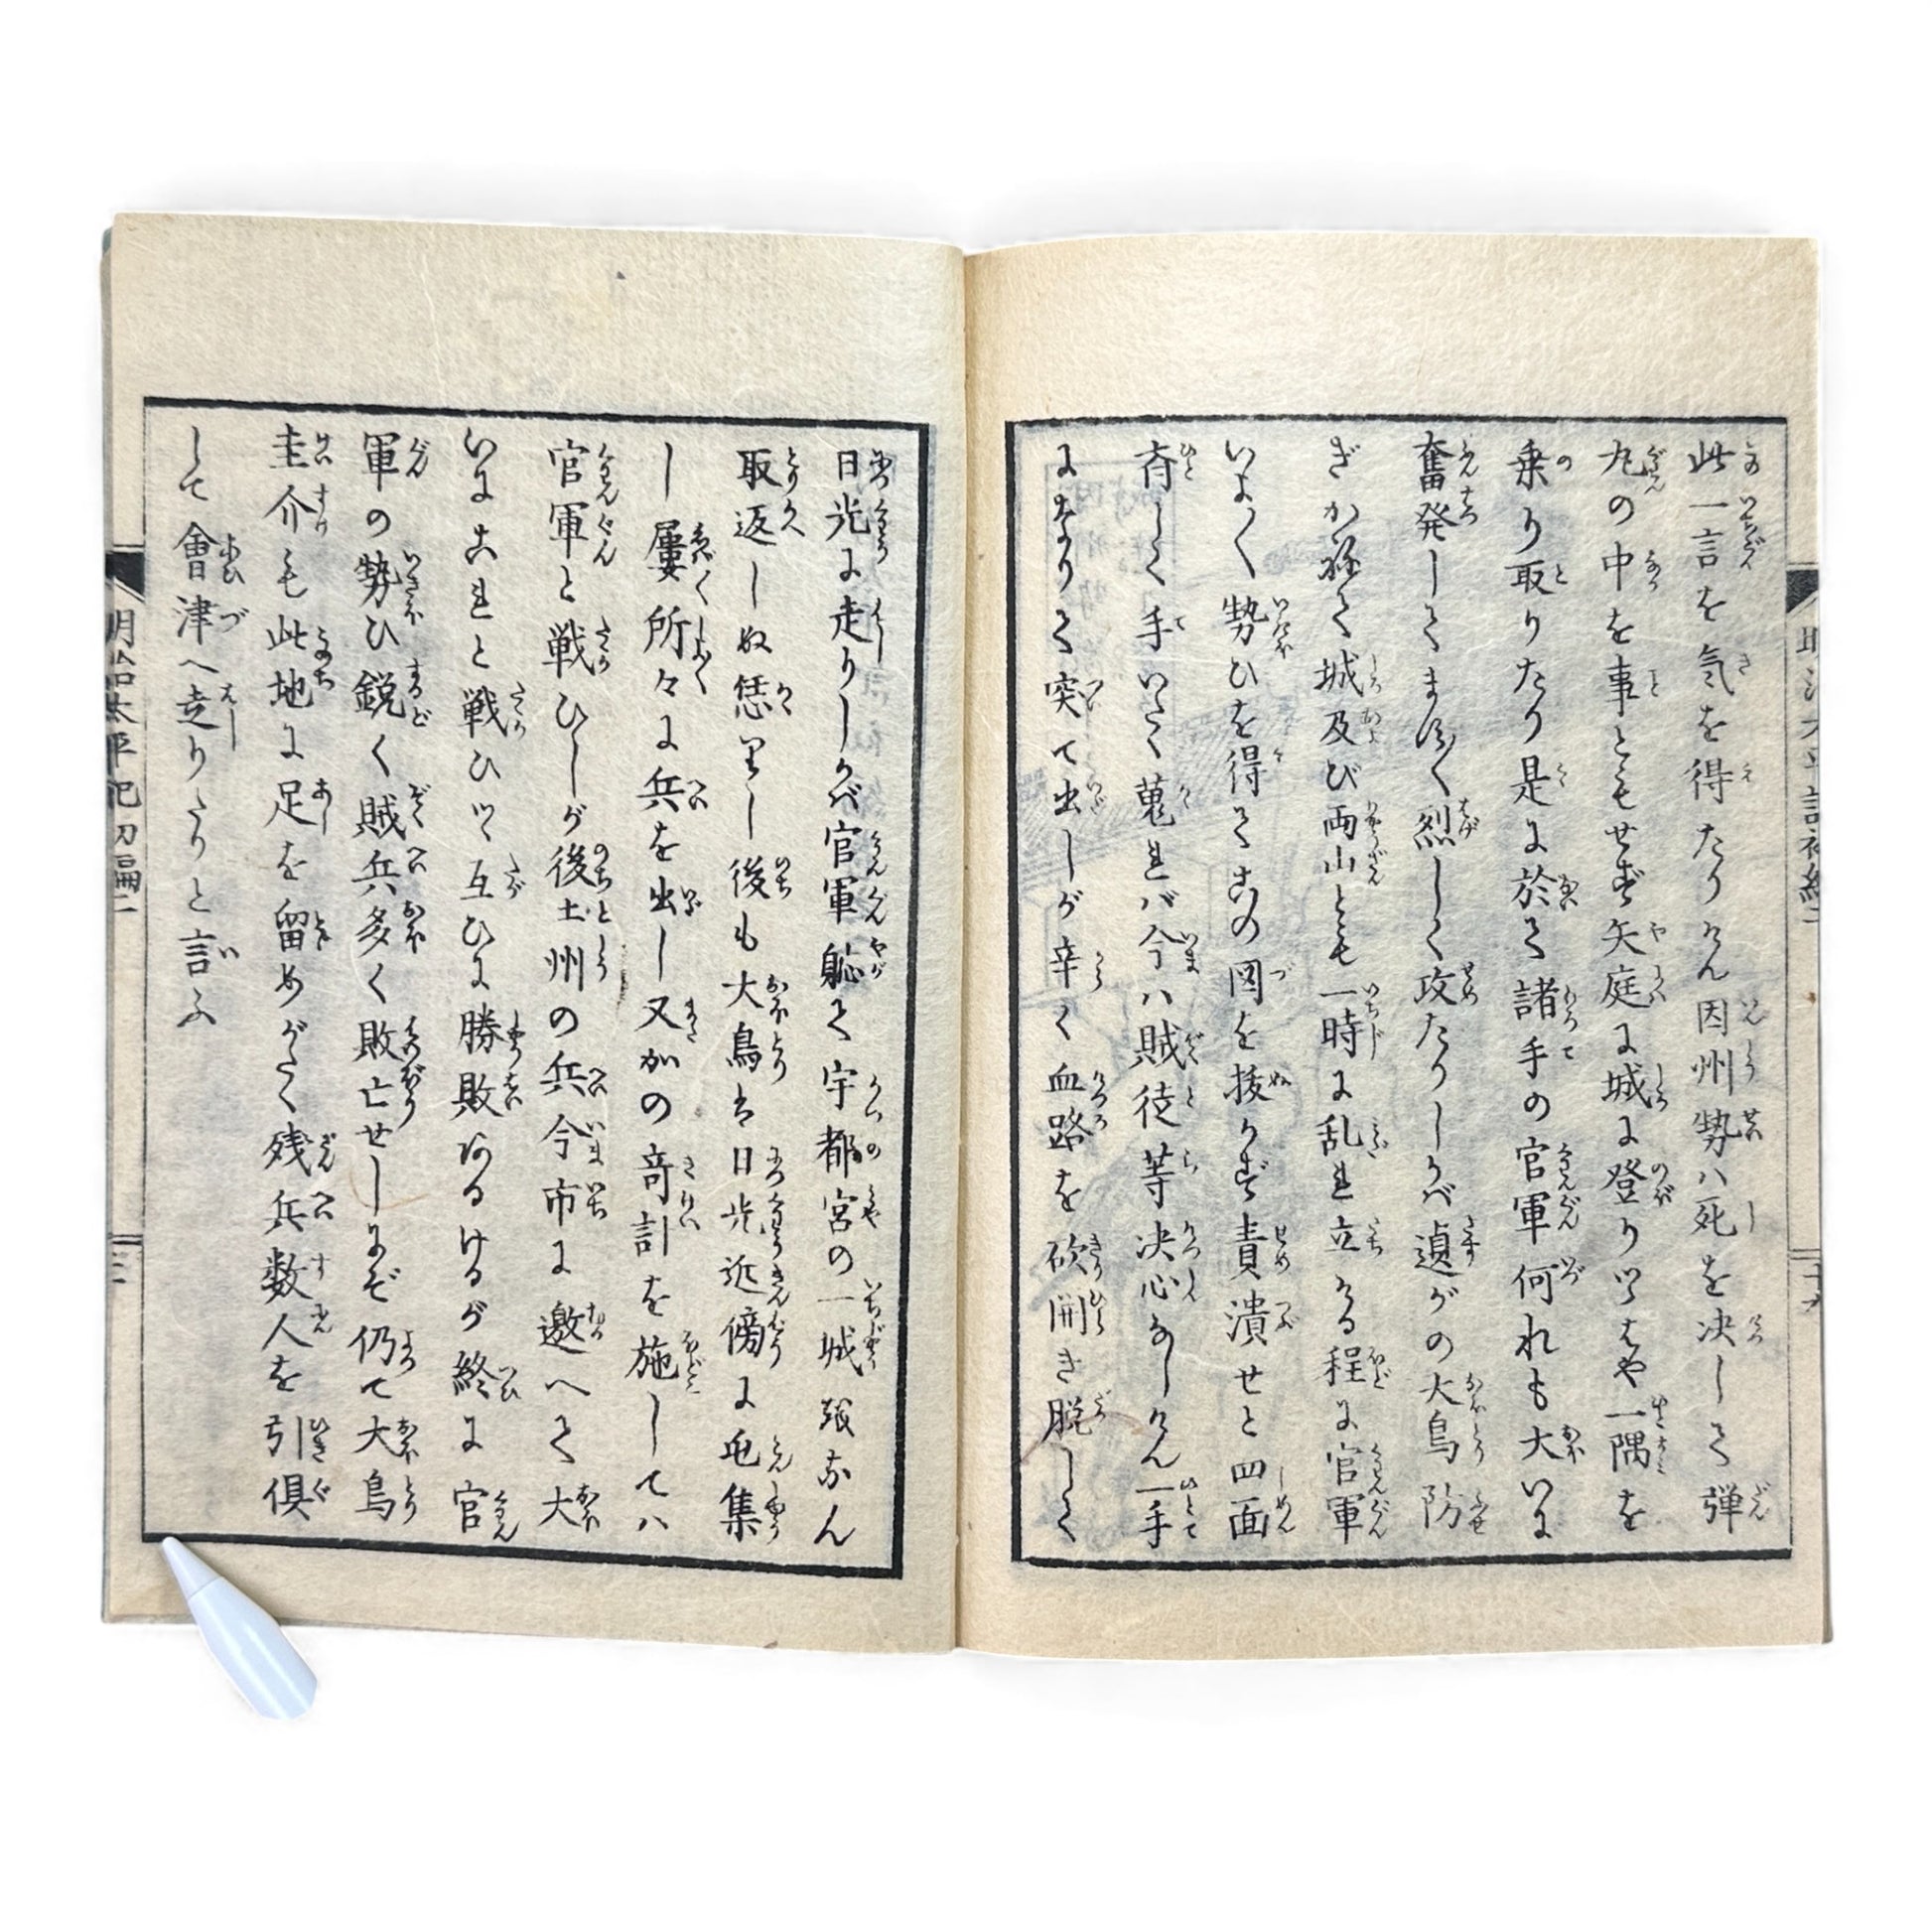 此一言を気を得たりけん因州勢ハ死を决して弾
丸の中を事ともせず矢庭に城に登りツヽはや一隅を
乗り取りたり是に於て諸手の官軍何れも大いに
奮発してます〳〵烈しく攻たりしかバ遉がの大鳥防
ぎかねて城及び両山とも一時に乱れ立ける程に官軍
いよ〳〵勢ひを得てこの図を抜かず責潰せと四面
斉しく手いたく蒐れバ今ハ賊徒等决心なしけん一手
になりて突て出しが辛く血路を砍開き脱して
日光に走りしかバ官軍躰て宇都宮の一城なん
取返しぬ恁りし後も大鳥は日光近傍に屯集
し屢所々に兵を出し又加の竒計を施してハ
官軍と戦ひしが後土州の兵今市に邀へて大
いにこれと戦ひツヽ互ひに勝敗ありけるが終に官
軍の勢ひ鋭く賊兵多く敗亡せしにぞ仍て大鳥
圭介も此地に足を留めがたく残兵数人を引俱
して會津へ走りたりと言ふ
明治太平記初編二